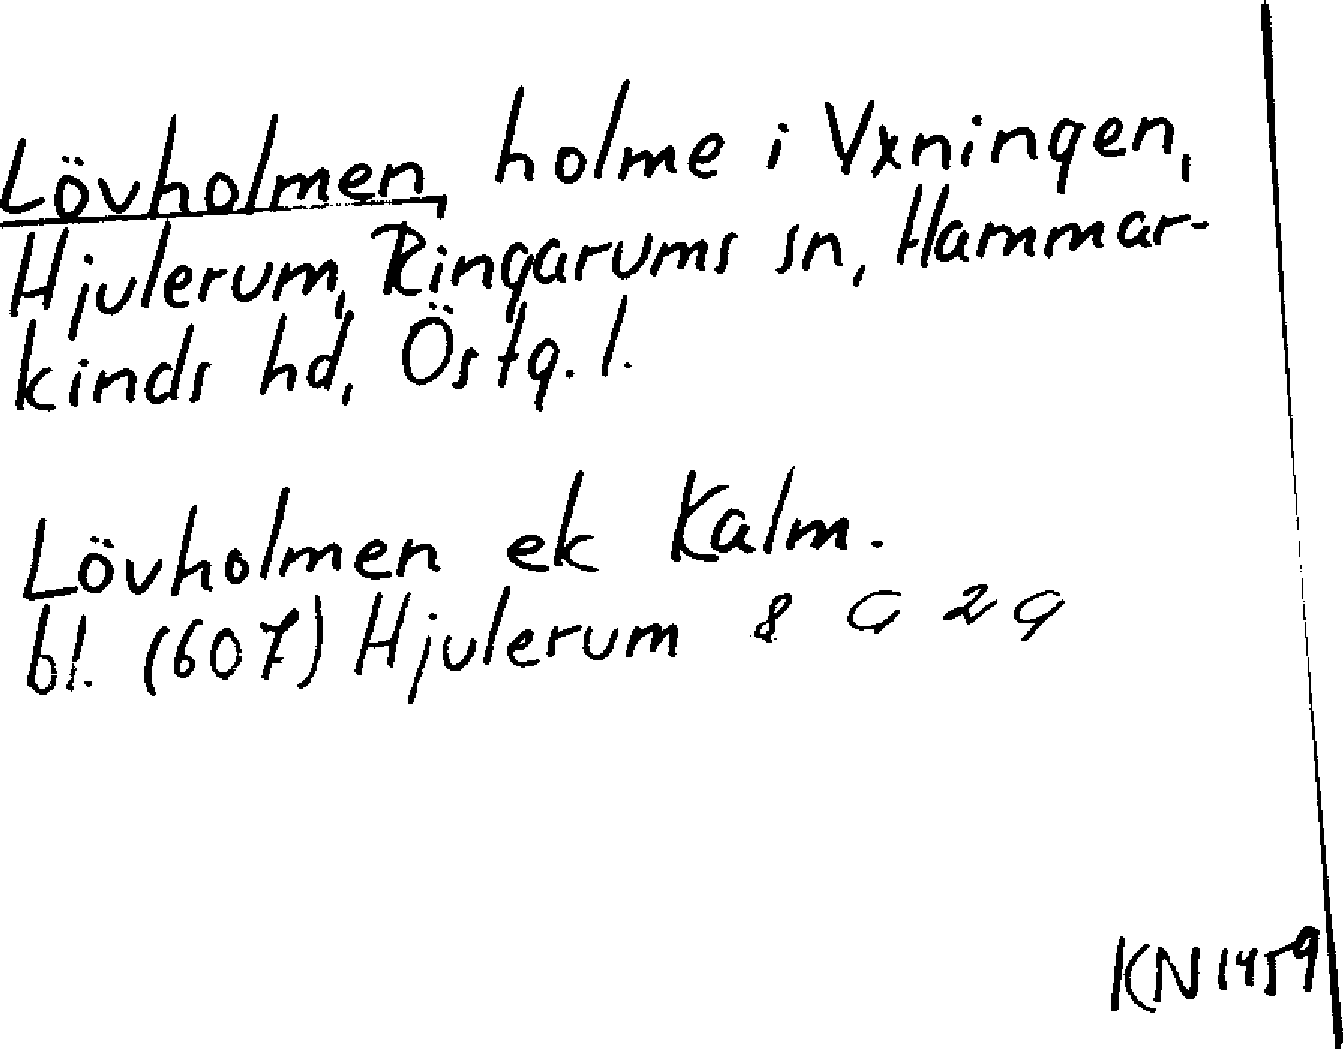 Lövholmen, holme i Vxningen,
Hjulerum, Ringarums sn, Hammar-
kinds hd, Östg. l.
Lövholmen ek Kalm.
bl. (607) Hjulerum 8 G 2 g
KN1459